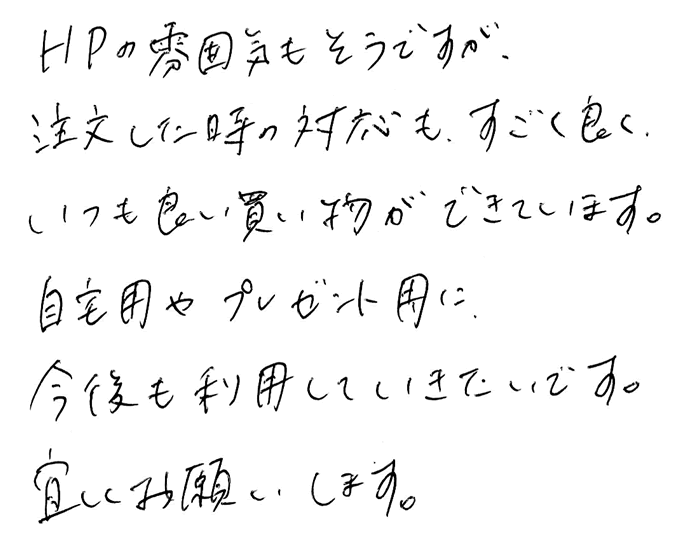 HPの雰囲気もそうですが、
注文した時の対応も、すごく良く、
いつも良い買い物ができています。
自宅用やプレゼント用に、
今後も利用していきたいです。
宜しくお願いします。